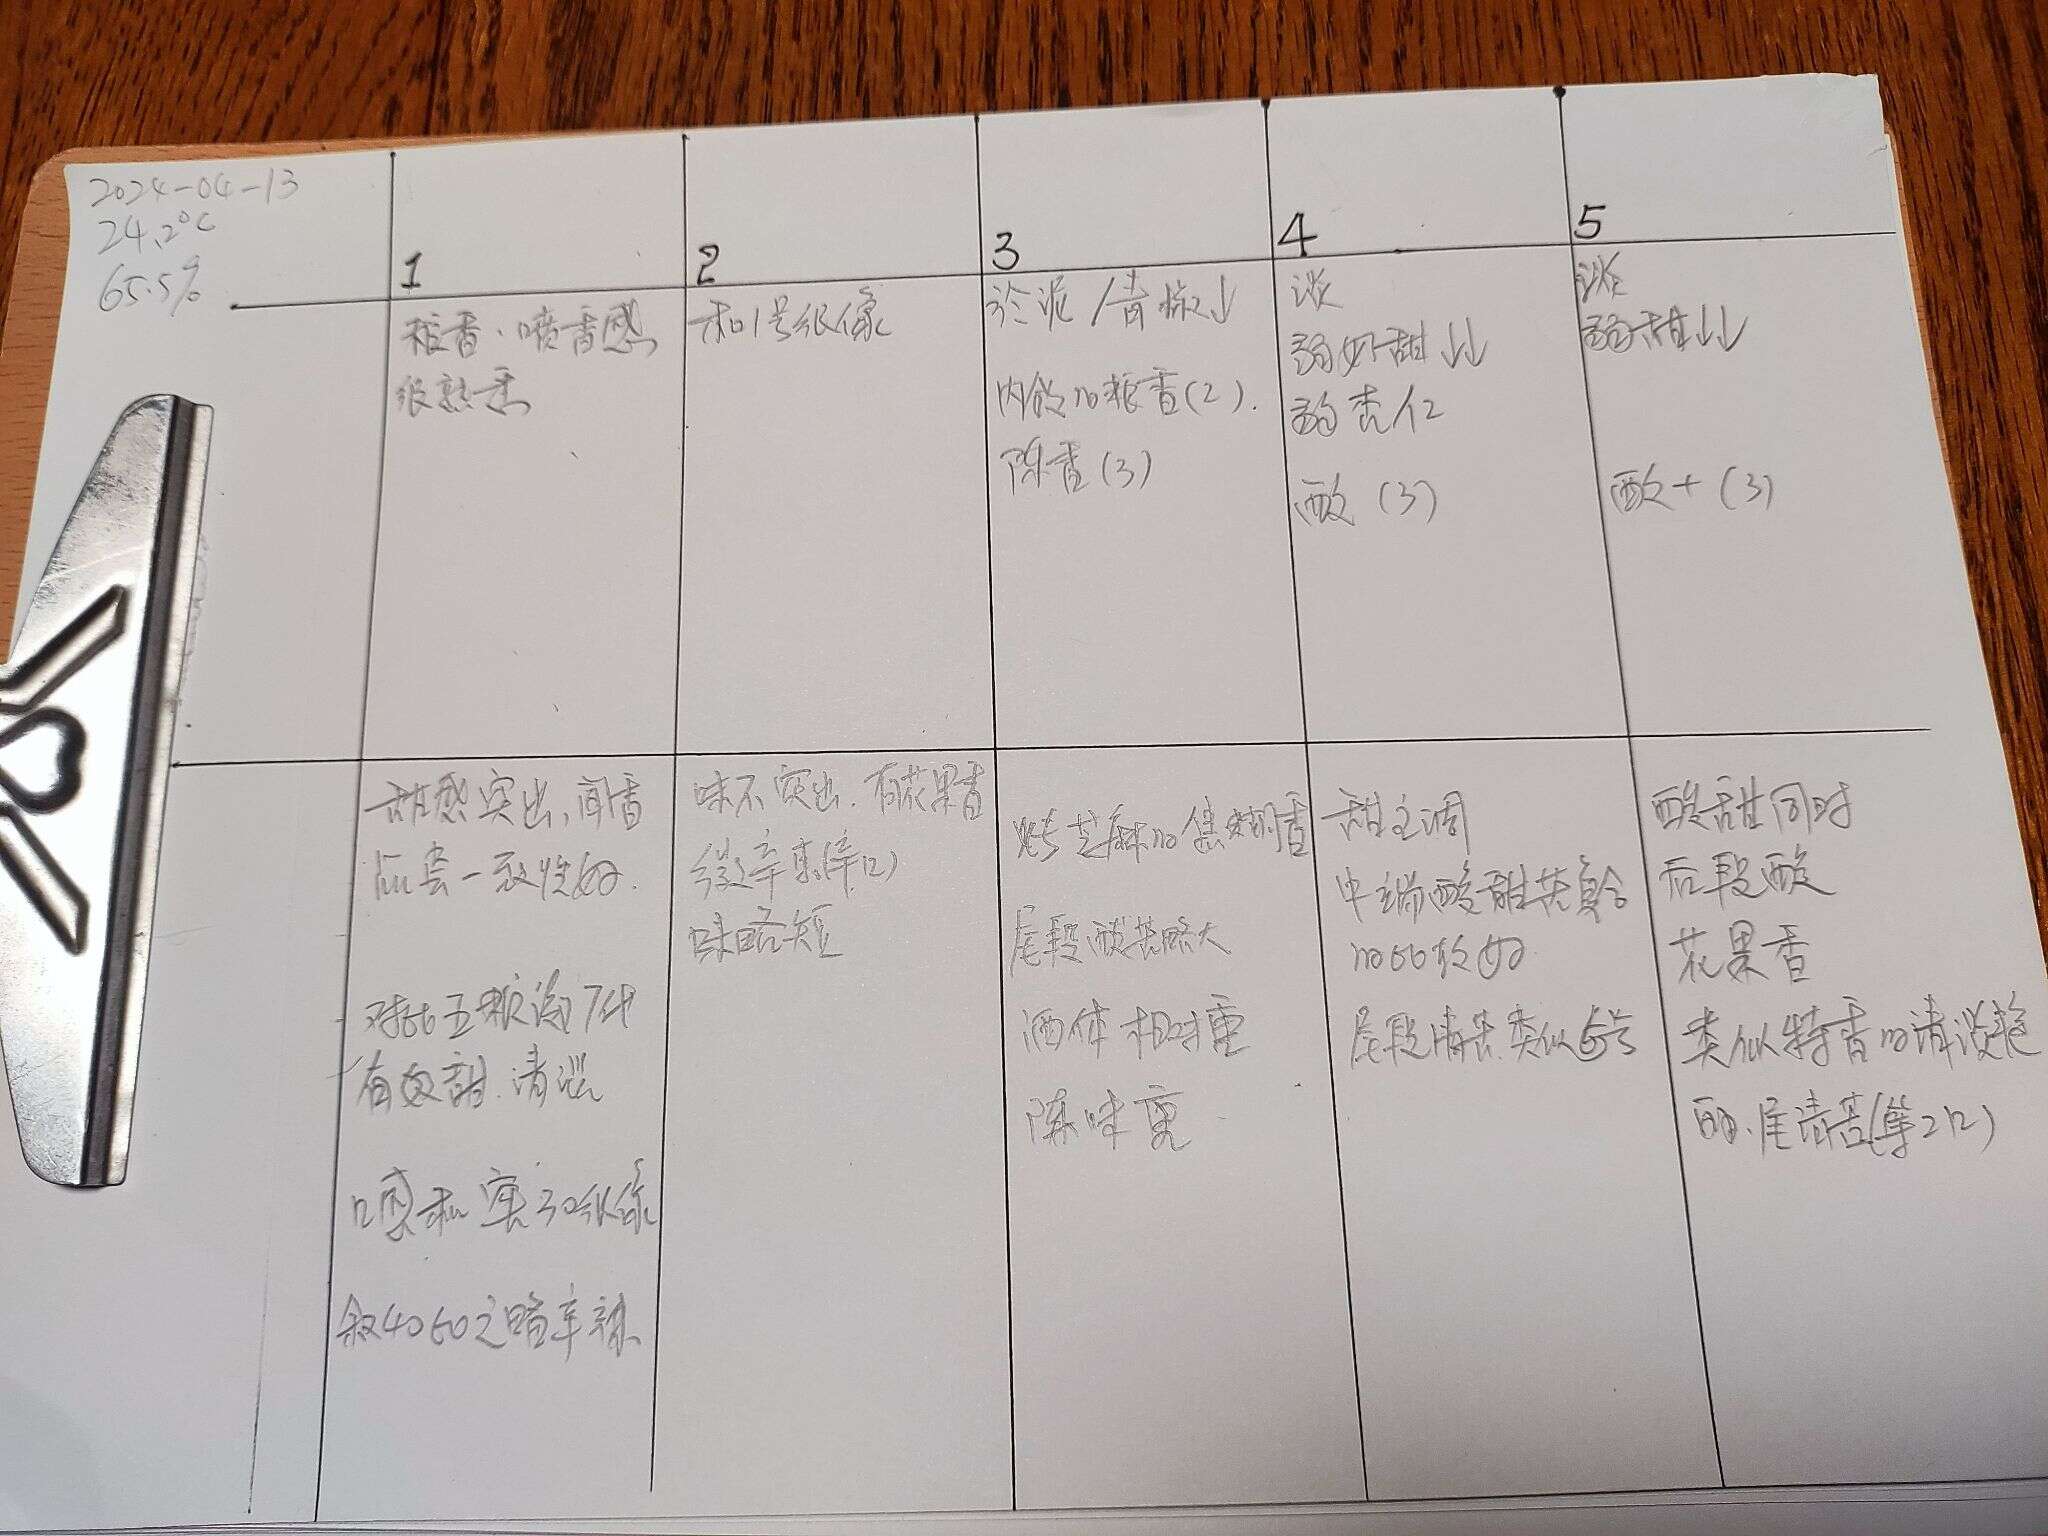 2024-04-13
24.2℃
65.5%
1
2
3
4
5
粮香、喷香感
很熟悉
和1号很像
淤泥/酱标↓
内敛的粮香(2).
陈香(3)
淡
弱甜↓↓
弱杏仁
酸 (3)
淡
弱甜↓↓
酸+ (3)
甜感突出、闻香
一致性好.
对比五粮液7代
有效甜.清淡
口感和 30很像
4060之略辛辣
味不突出.有花果香
微辛辣(第1口)
味略短
烤芝麻的焦糊香
尾段酸苦略大
酒体相对重
陈味重
甜主调
中端酸甜苦复合
的比较好
尾段清苦.类似5号
酸甜同时
后段酸
花果香
类似特香的清淡
尾清苦(第2口)